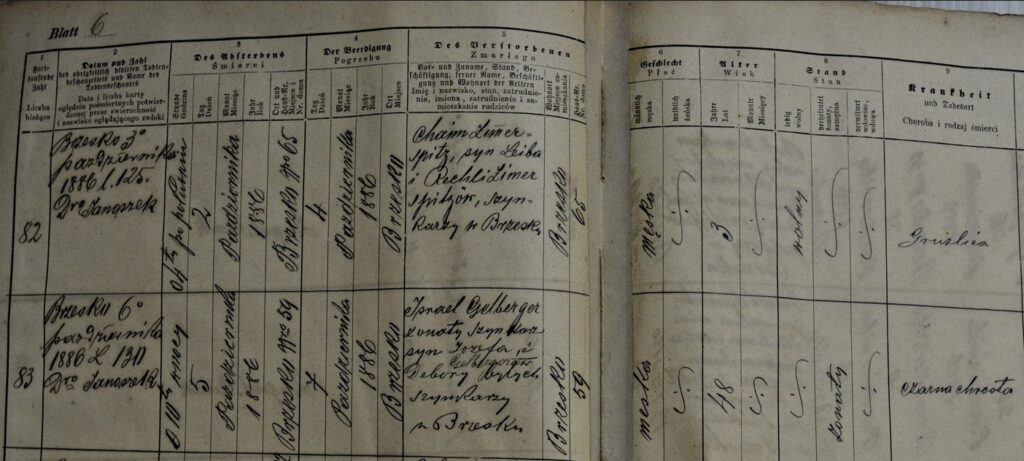 Blatt 6
1
2
3
4
5
6
7
8
9
Fort-
laufende
Zahl
Liczba
bieżąca
Datum und Zahl
des obrigkeitlich vidirten Todten-
beschauzettels und Name des
Todtenbeschauers
Data i liczba karty
oględzin pośmiertnych potwier-
dzonej przez zwierzchność
i nazwisko oglądającego zwłoki
Des Absterbens
Śmierci
Stunde
Godzina
Tag
Dzień
Monat
Miesiąc
Jahr
Rok
Der Beerdigung
Pogrzebu
Tag
Dzień
Monat
Miesiąc
Jahr
Rok
Ort
Miejsce
Des Verstorbenen
Zmarłego
Vor- und Zuname, Stand, Be-
schäftigung, ferner Name, Beschäfti-
gung und Wohnort der Eltern
Imię i nazwisko, stan, zatrudnie-
nie, imiona, zatrudnienie i za-
mieszkanie rodziców
Wohnort
Miejsce za-
mieszkania
Geschlecht
Płeć
männlich
męska
weiblich
żeńska
Alter
Wiek
Jahre
Lat
Monate
Miesięcy
Stand
Stan
ledig
wolny
verheiratet
żonaty,
zamężna
verwitwet
wdowiec,
wdowa
Krankheit
und Todesart
Choroba i rodzaj śmierci
82
Brzesko 3°
października
1886 l. 125.
Dro Janoszek
04tej po połudn
2
Października
1886
Brzesko Nro 65
4
Października
1886
Brzesko
Chaim Limer-
spitz, syn Leiba
i Rechli Limer
spitzów, szyn-
karzy w Brzesk
Brzesko
65
męska
3
wolny
Gruźlica
83
Brzesko 6°
października
1886 L 130
Dro Janoszek
o 10tej w nocy
5
Października
1886
Brzesko Nro 59
7
Października
1886
Brzesko
Israel Gelberger
żonaty szynkarz
syn Józefa i
Gelbergerów
Debory byłych
szynkarzy
w Brzesku
Brzesko
59
męska
48
żonaty
Czarna chrosta